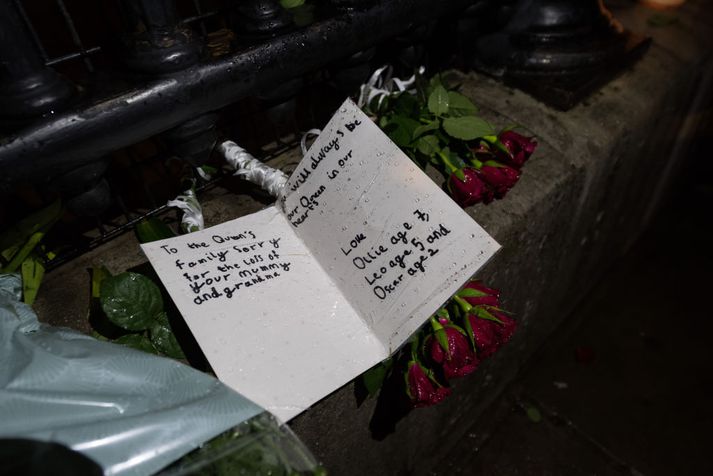 To the Queen's
family Sorry
for the loss of
your mummy
and grandma
will always be
our Queen in our
hearts
Love
Ollie age 7,
Leo age 5 and
Oscar age 2